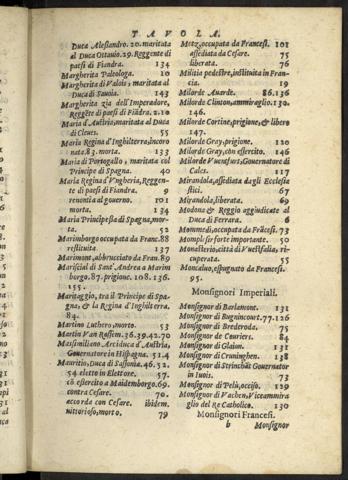 TAVOLA.
Duca Alessandro. 20. maritata
al Duca Ottauio. 29. Reggente di
paesi di Fiandra. 134
Margherita Paleologa. 10
Margherita di Valois, maritata al
Duca di Sauoia. 143
Margherita zia dell'Imperadore,
Reggēte di paesi di Fiādra. 2. 10
Maria d'Austria, maritata al Duca
di Cleues. 55
Maria Regina d'Inghilterra, incoro
nata 83. morta. 133
Maria di Portogallo, maritata col
Principe di Spagna. 40
Maria Regina d'Vngheria, Reggen-
te di paesi di Fiandra. 9
renontia al gouerno. 101
morta. 134
Maria Principessa di Spagna, mor-
ta. 52
Marimborgo occupata da Franc. 88
restituita 137
Marimont, abbrucciato da Fran. 89
Mariscial di Sant'Andrea a Marim
borgo. 87. prigione. 108. 136.
155.
Maritaggio, tra il Principe di Spa-
gna, & la Regina d'Inghilterra.
84.
Martino Luthero, morto. 53
Martin Van Rossem. 36. 39. 42. 70
Massimiliano Arciduca d'Austria
Gouernatore in Hispagna. 51. 4
Mauritio, Duca di Sassonia. 46. 52.
54 eletto in Elettore. 57.
cō esercito a Maidemborgo. 69.
contra Cesare. 70.
accorda con Cesare. ibidem.
vittorioso, morto. 79
Metz, occupata da Francesi. 101
assediata da Cesare. 75
liberata. 76
Militia pedestre, instituita in Fran-
cia. 19
Milorde Auarde. 86. 136
Milorde Clinton, ammiraglio. 130.
146.
Milorde Cortine, prigione, & libero
147.
Milorde Gray, prigione. 120
Milorde Gray, con esercito. 146
Milorde Vuenfurt, Gouernatore di
Cales. 117
Mirandola, assediata dagli Ecclesia
stici. 67
Mirandola, liberata. 69
Modona & Reggio aggiudicate al
Duca di Ferrara. 6
Mommedi, occupata da Frācesi. 73
Monplisir forte importante. 50
Monasterio, città di Vuestfalia, ri-
cuperata. 55
Moncaluo, espugnato da Francesi.
95.
Monsignori Imperiali.
Monsignor di Barlamone. 131
Monsignor di Bugnincourt. 77. 126
Monsignor di Brederoda. 75
Monsignor de Couriers. 84
Monsignor di Glaion. 131
Monsignor di Cruninghen. 138
Monsignor di Strinchāt Gouernator
in Iuois. 73
Monsignor di Pelù, occiso. 129
Monsignor di Vachen, Viceammira
glio del Re Catholico. 130
Monsignori Francesi.
b Monsignor